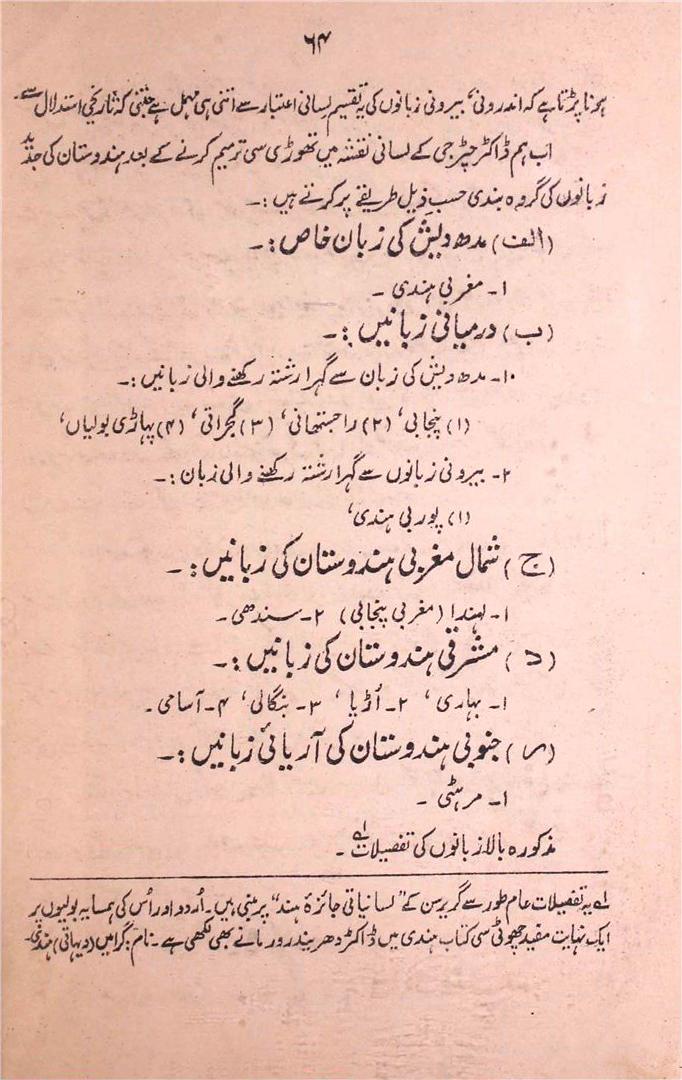 ۶۴
ہونا پڑتا ہے کہ اندرونی، بیرونی زبانوں کی یہ تقسیم لسانی اعتبار سے اتنی ہی مہمل ہے جتنی کہ تاریخی استدلال سے۔
اب ہم ڈاکٹر چٹرجی کے لسانی نقشہ میں تھوڑی سی ترمیم کرنے کے بعد ہندوستان کی جدید
زبانوں کی گروہ بندی حسبِ ذیل طریقے پر کرتے ہیں :۔
(الف) مدھ دیش کی زبان خاص :۔
۱۔ مغربی ہندی ۔
(ب) درمیانی زبانیں :۔
۱۔ مدھ دیش کی زبان سے گہرا رشتہ رکھنے والی زبانیں :۔
(۱) پنجابی، (۲) راجستھانی، (۳) گجراتی، (۴) پہاڑی بولیاں،
۲۔ بیرونی زبانوں سے گہرا رشتہ رکھنے والی زبان :۔
(۱) پوربی ہندی،
(ج) شمال مغربی ہندوستان کی زبانیں :۔
۱۔ لہندا (مغربی پنجابی) ۲۔ سندھی ۔
(د) مشرقی ہندوستان کی زبانیں :۔
۱۔ بہاری، ۲۔ اُڑیا، ۳۔ بنگالی، ۴۔ آسامی ۔
(ر) جنوبی ہندوستان کی آریائی زبانیں :۔
۱۔ مرہٹی ۔
مذکورہ بالا زبانوں کی تفصیلات ؂۱ ۔
؂۱ یہ تفصیلات عام طور سے گریرسن کے "لسانیاتی جائزۂ ہند" پر مبنی ہیں۔ اُردو اور اُس کی ہمسایہ بولیوں پر
ایک نہایت مفید چھوٹی سی کتاب ہندی میں ڈاکٹر دھریندر ورما نے بھی لکھی ہے ۔ نام : گرامیں (دیہاتی) ہندی۔